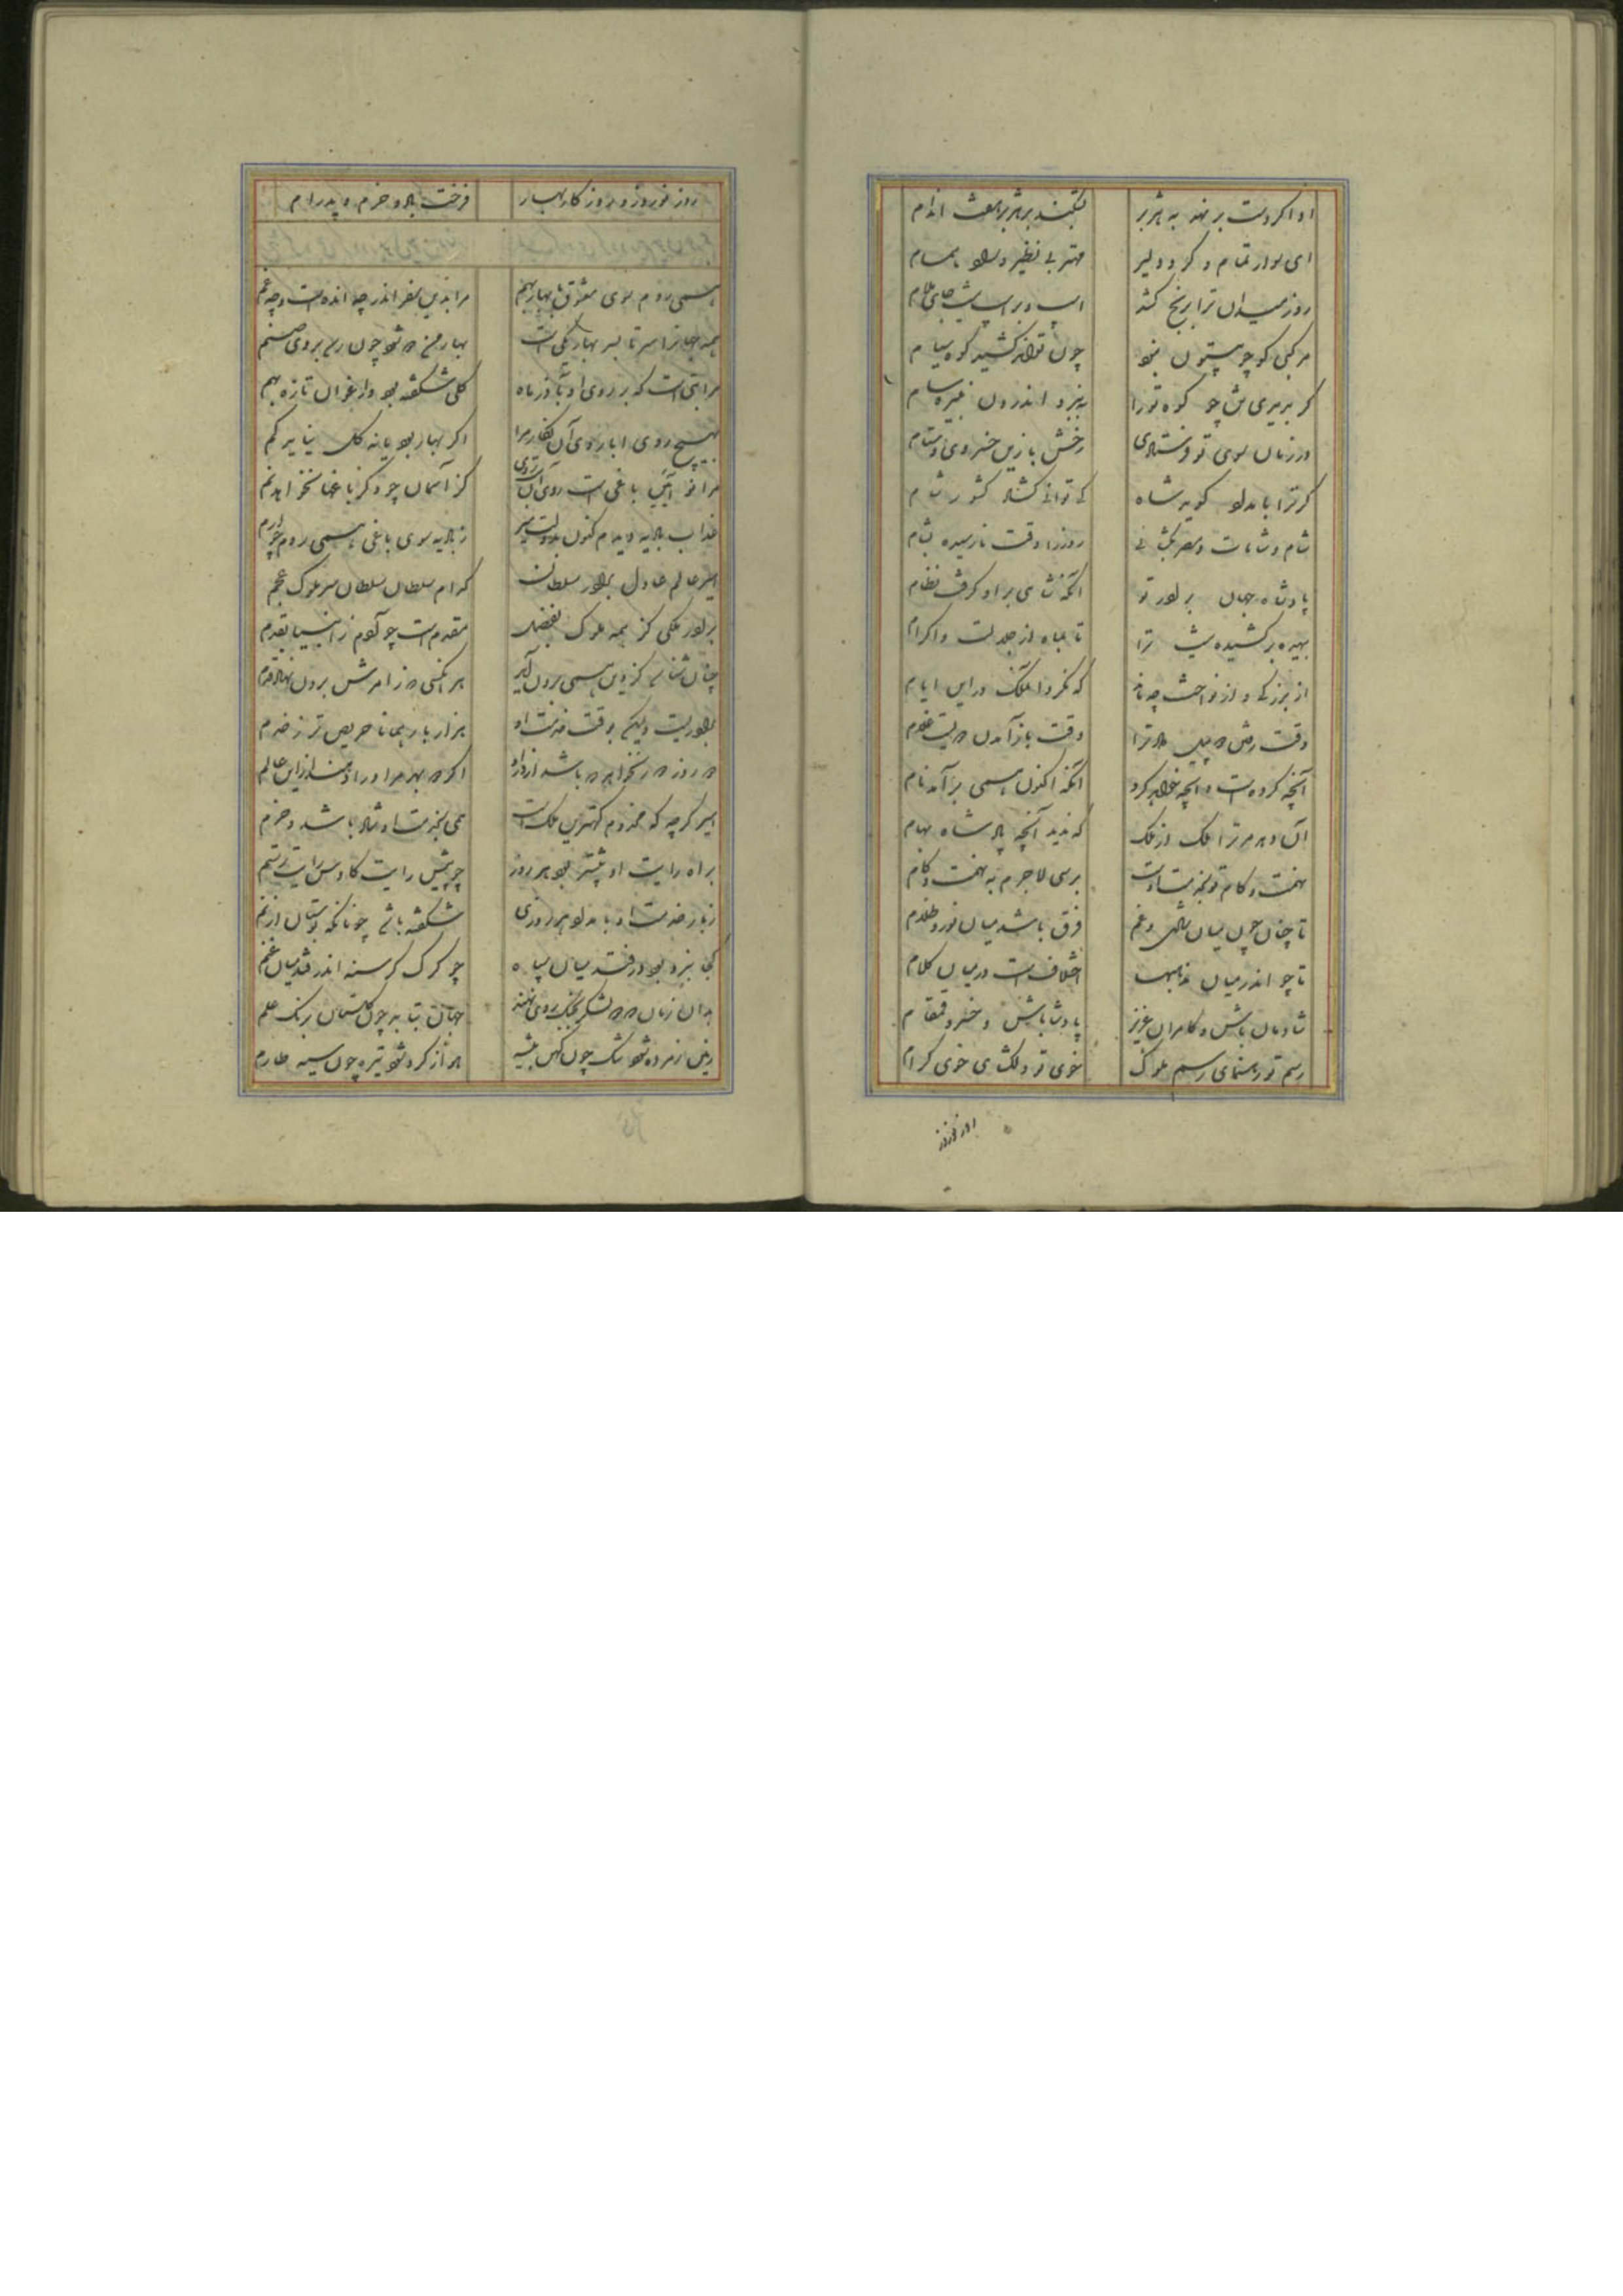 او اگر دست بر نهد به هژبر بشکند بر هژبر هفت اندام
ای سوار تمام و گرد و دلیر مهتر بی نظیر و راد همام
روز میدان ترا برنج کشد اسب و بر اسب نیست جای ملام
مرکبی کو چو بیستون نبود چون تواند کشید کوه سیام
گر بریری تن چو کوه تو را نبرد اندرون خیره سام
در زمان سوی تو فرستادی رخش با زین خسروی و ستام
گر ترا بامداد گوید شاه که توانی گشاد کشور شام
شام و شامات و مصر بگشائی روز را وقت نارسیده بشام
پادشاه جهان برادر تو آنکه شاهی بر او گرفت نظام
بهره برکشیدنیست ترا تا بماه از جلالت و اکرام
از بزرگی و از نواخت چه ماند که نکرد آن ملک در این ایام
وقت رفتن پیل داد ترا وقت باز آمدن
آنچه کرده است و آنچه خواهد کرد آنکه اکنون همی برآمد نام
آن دهد مر ترا ملک از ملک که ندید آنچه پادشاه بهام
نهمت و کام تو بخدمت اوست برسی لاجرم به نهمت و کام
تا چنان چون میان شادی و غم فرق باشد میان نور و ظلام
تا چو اندر میان مذهبها اختلاف است در میان کلام
شادمان باش و کامران و عزیز پادشا باش و خسرو و قمقام
رسم تو رهنمای رسم ملوک خوی تو دلگشای خوی کرام
روز نوروز
روز نوروز و روزگار بهار فرخت باد و خرم و پدرام
همی روم سوی معشوق با بهار بهم مرا بدین سفر اندر چه انده است و چه غم
همه جهان را سر تا بسر بهار یکیست بهار من دو شود چون رسم بروی صنم
مرا بتی است که بر روی او بآذرماه گلی شکفته بود وارغوان تازه بهم
بهیچ روی ابا روی آن نگار مرا اگر بهار بود یا نه گل نیاید کم
مرا نو آیین باغی است روی آن بت روی کز آسمان چو دگر باغها نخواهد نم
خداب بادیه دیدم کنون بدولت میر ز بادیه سوی باغی همی روم خرم
امیر عالم عادل برادر سلطان کدام سلطان سلطان سر ملوک عجم
برادر ملکی کز همه ملوک بفضل مقدم است چو آدم ز انبیا بقدم
چنان شناسی کز دین همی برون آید هر آنکسی که ز امرش برون نهاد قدم
برادریست ولیکن بوقت خدمت او هزار بار همانا حریص تر ز خدم
دو روز دور نخواهد که باشد از در او اگر دو بهر مر او را دهند از این عالم
امیر گرچه که مخدوم کهترین ملک است همی بخدمت او شاد باشد و خرم
براه رایت او پیشتر بود هر روز چو پیش رایت کاوس رایت رستم
ز بار خدمت او بامداد هر روزی شکفته باشد چونانکه بوستان از نم
کجا نبرد بود درفتد میان سپاه چو گرگ گرسنه اندر فتد میان غنم
بدان زمان که دو لشکر بجنگ روی نهند جهان نماید چون گلستان برنگ علم
زمین ز مرده شود تنگ چون که بیشه هوا ز گرد شود تیره چون سیه طارم